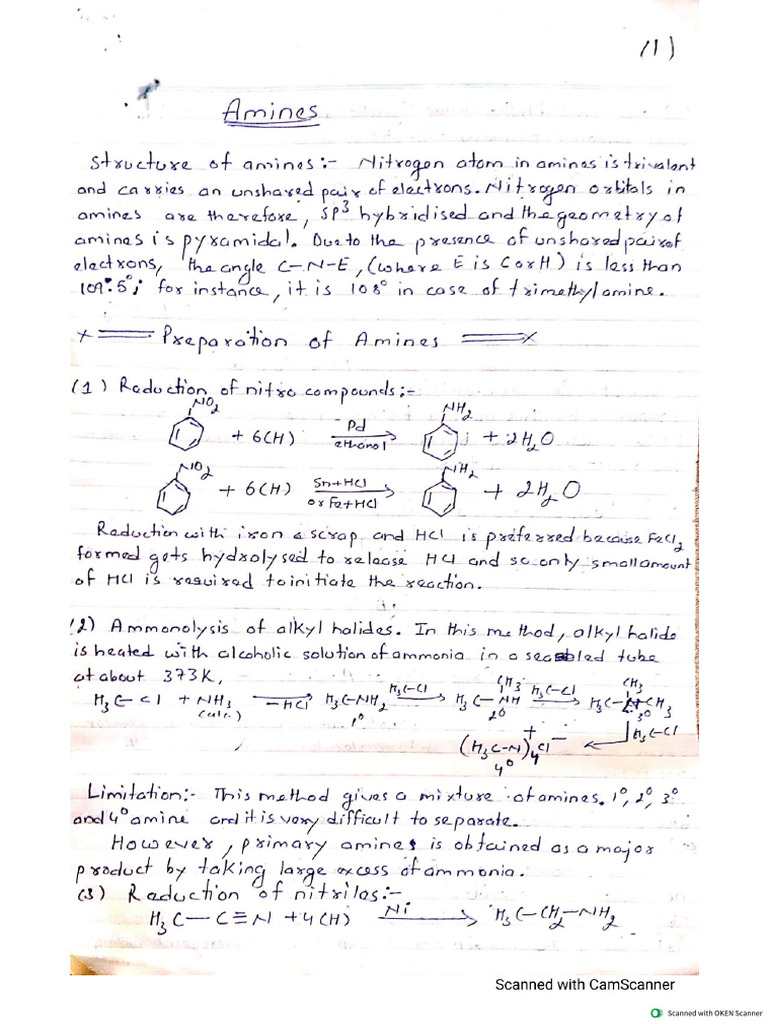 (1)
Amines
Structure of amines:- Nitrogen atom in amines is trivalent
and carries an unshared pair of electrons. Nitrogen orbitals in
amines are therefore, SP³ hybridised and the geometry of
amines is pyramidal. Due to the presence of unshared pair of
electrons, the angle C-N-E, (where E is C or H) is less than
109.5°; for instance, it is 108° in case of trimethylamine.
Preparation of Amines
(1) Reduction of nitro compounds:-
NO₂ + 6(H) Pd ethanol → NH₂ + 2H₂O
NO₂ + 6(H) Sn+HCl or Fe+HCl → NH₂ + 2H₂O
Reduction with iron scrap and HCl is preferred because FeCl₂
formed gets hydrolysed to release HCl and so only small amount
of HCl is required to initiate the reaction.
(2) Ammonolysis of alkyl halides. In this method, alkyl halide
is heated with alcoholic solution of ammonia in a sealed tube
at about 373K,
H₃C-Cl + NH₃ (alc.) -HCl → H₃C-NH₂ 1° H₃C-Cl → H₃C-NH CH₃ 2° H₃C-Cl → H₃C-N-CH₃ CH₃ 3°
H₃C-Cl
(H₃C-N)₄ + Cl⁻ 4°
Limitation:- This method gives a mixture of amines. 1°, 2°, 3°
and 4° amine and it is very difficult to separate.
However, primary amines is obtained as a major
product by taking large excess of ammonia.
(3) Reduction of nitriles:-
H₃C-C≡N + 4(H) Ni → H₃C-CH₂-NH₂
Scanned with CamScanner
Scanned with OKEN Scanner